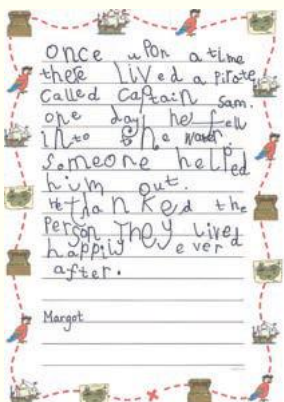 once upon a time
there lived a pirate
called captain sam.
one day he fell
into the water.
someone helped
him out.
He thanked the
Person They lived
happily ever
after.
Margot